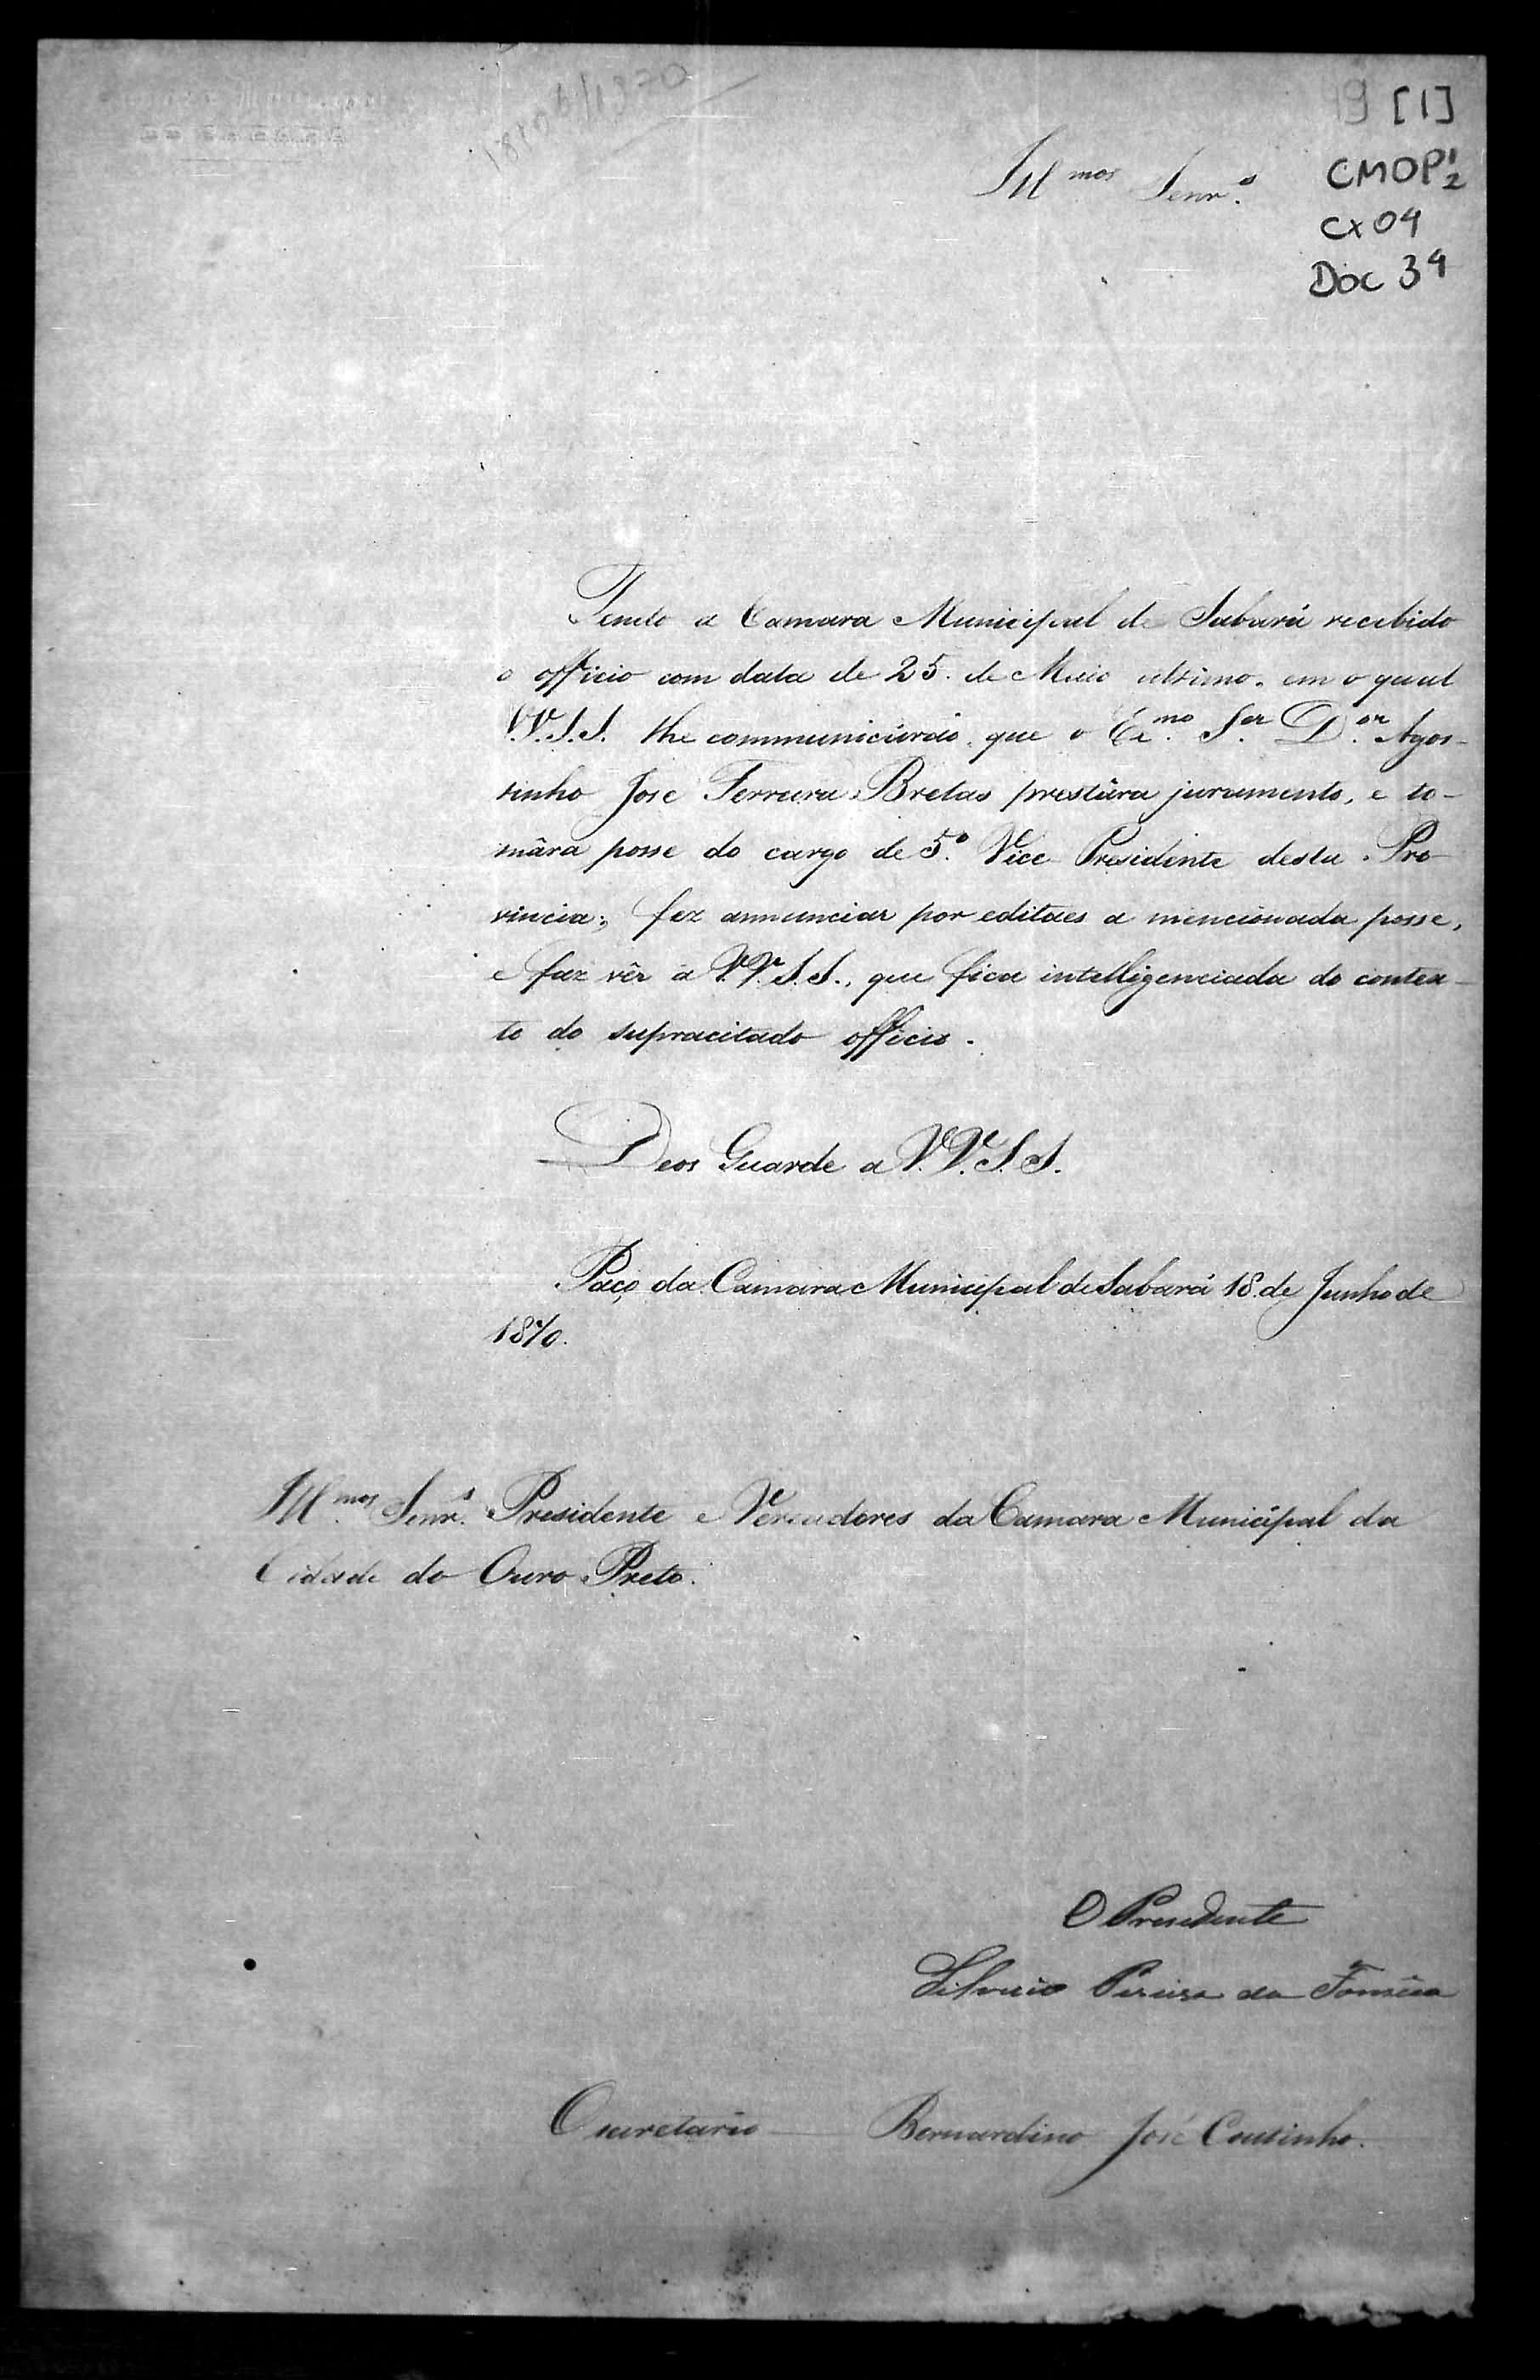 [1]
CMOP 1/2
Cx 04
Doc 39
Ill.mos Senr.s
Tendo a Camara Municipal de Sabará recebido
o officio com data de 25. de Maio ultimo, em o qual
V.V.S.S. lhe communicárão, que o Ex.mo S.or D.or Agos-
tinho José Ferreira Bretas prestára juramento, e to-
mára posse do cargo de 5.º Vice Presidente desta Pro-
vincia; fez annunciar por editaes a mencionada posse,
e faz vêr a V.V.S.S., que fica intelligenciada do contex-
to do supracitado officio.
Deos Guarde a V.V.S.S.
Paço da Camara Municipal de Sabará 18. de Junho de
1870.
Ill.mos Senr.s Presidente e Vereadores da Camara Municipal da
Cidade do Ouro Preto.
O Presidente
Silverio Pereira da Fonseca
O secretario Bernardino José Coutinho.